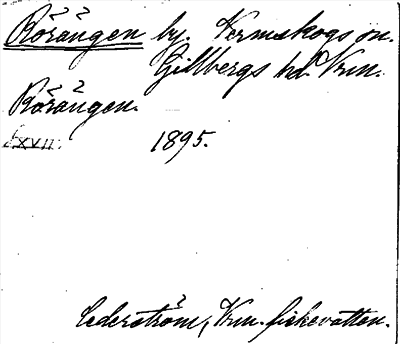 Rörängen by. Vermskogs sn.
Gillbergs hd. Vrm.
Rörängen.
LXVII. 1895.
Cederström, Vrm. fiskevatten.